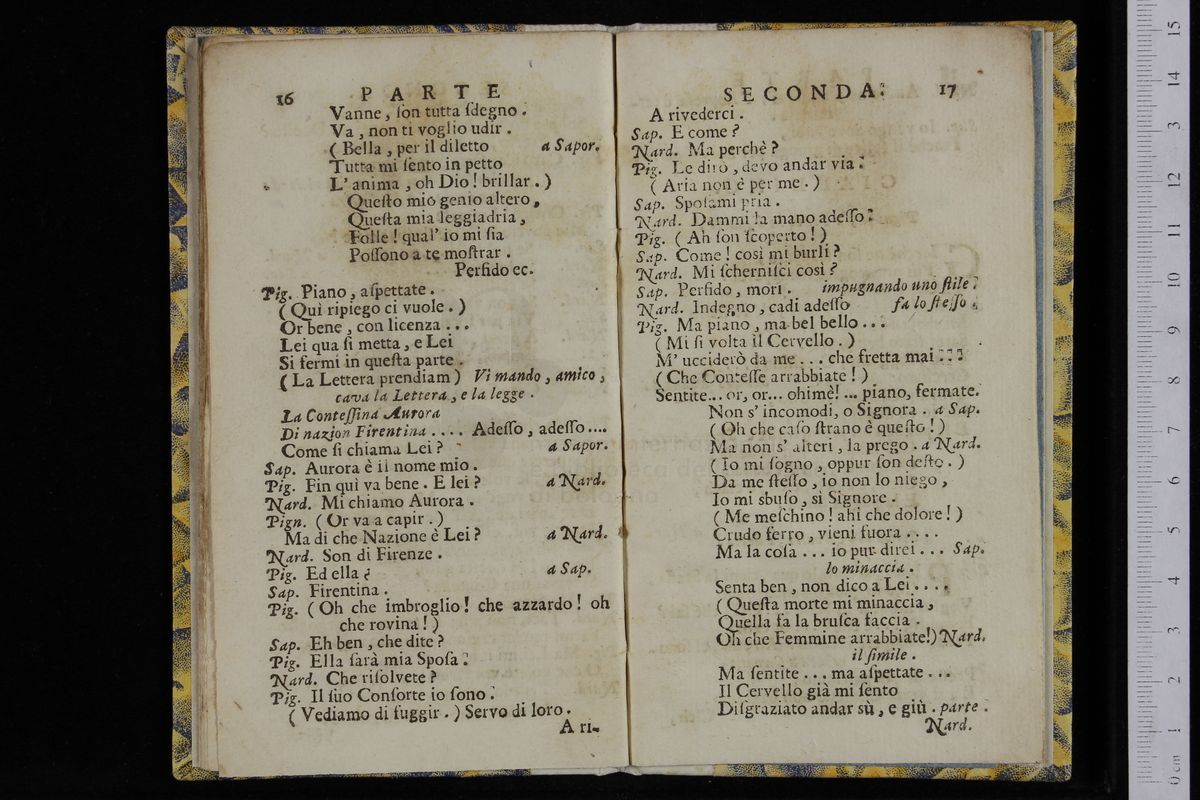 16 PARTE
Vanne, ſon tutta ſdegno.
Va, non ti voglio udir.
(Bella, per il diletto a Sapor.
Tutta mi ſento in petto
L' anima, oh Dio! brillar.)
Queſto mio genio altero,
Queſta mia leggiadria,
Folle! qual' io mi ſia
Poſſono a te moſtrar.
Perfido ec.
Pig. Piano, aſpettate.
(Quì ripiego ci vuole.)
Or bene, con licenza...
Lei qua ſi metta, e Lei
Si fermi in queſta parte.
(La Lettera prendiam) Vi mando, amico,
cava la Lettera, e la legge.
La Conteſſina Aurora
Di nazion Firentina.... Adeſſo, adeſſo....
Come ſi chiama Lei? a Sapor.
Sap. Aurora è il nome mio.
Pig. Fin quì va bene. E lei? a Nard.
Nard. Mi chiamo Aurora.
Pign. (Or va a capir.)
Ma di che Nazione è Lei? a Nard.
Nard. Son di Firenze.
Pig. Ed ella? a Sap.
Sap. Firentina.
Pig. (Oh che imbroglio! che azzardo! oh
che rovina!)
Sap. Eh ben, che dite?
Pig. Ella ſarà mia Spoſa.
Nard. Che riſolvete?
Pig. Il ſuo Conſorte io ſono.
(Vediamo di fuggir.) Servo di loro.
A ri-
SECONDA. 17
A rivederci.
Sap. E come?
Nard. Ma perchè?
Pig. Le dirò, devo andar via.
(Aria non è per me.)
Sap. Spoſami pria.
Nard. Dammi la mano adeſſo.
Pig. (Ah ſon ſcoperto!)
Sap. Come! così mi burli?
Nard. Mi ſcherniſci così?
Sap. Perfido, mori. impugnando uno ſtile.
Nard. Indegno, cadi adeſſo fa lo ſteſſo.
Pig. Ma piano, ma bel bello...
(Mi ſi volta il Cervello.)
M' ucciderò da me... che fretta mai...
(Che Conteſſe arrabbiate!)
Sentite... or, or... ohimè!... piano, fermate.
Non s' incomodi, o Signora. a Sap.
(Oh che caſo ſtrano è queſto!)
Ma non s' alteri, la prego. a Nard.
(Io mi ſogno, oppur ſon deſto.)
Da me ſteſſo, io non lo niego,
Io mi sbuſo, sì Signore.
(Me meſchino! ahi che dolore!)
Crudo ferro, vieni fuora....
Ma la coſa... io pur direi... Sap.
lo minaccia.
Senta ben, non dico a Lei....
(Queſta morte mi minaccia,
Quella fa la bruſca faccia.
Oh che Femmine arrabbiate!) Nard.
il ſimile.
Ma ſentite... ma aſpettate...
Il Cervello già mi ſento
Diſgraziato andar sù, e giù. parte.
Nard.